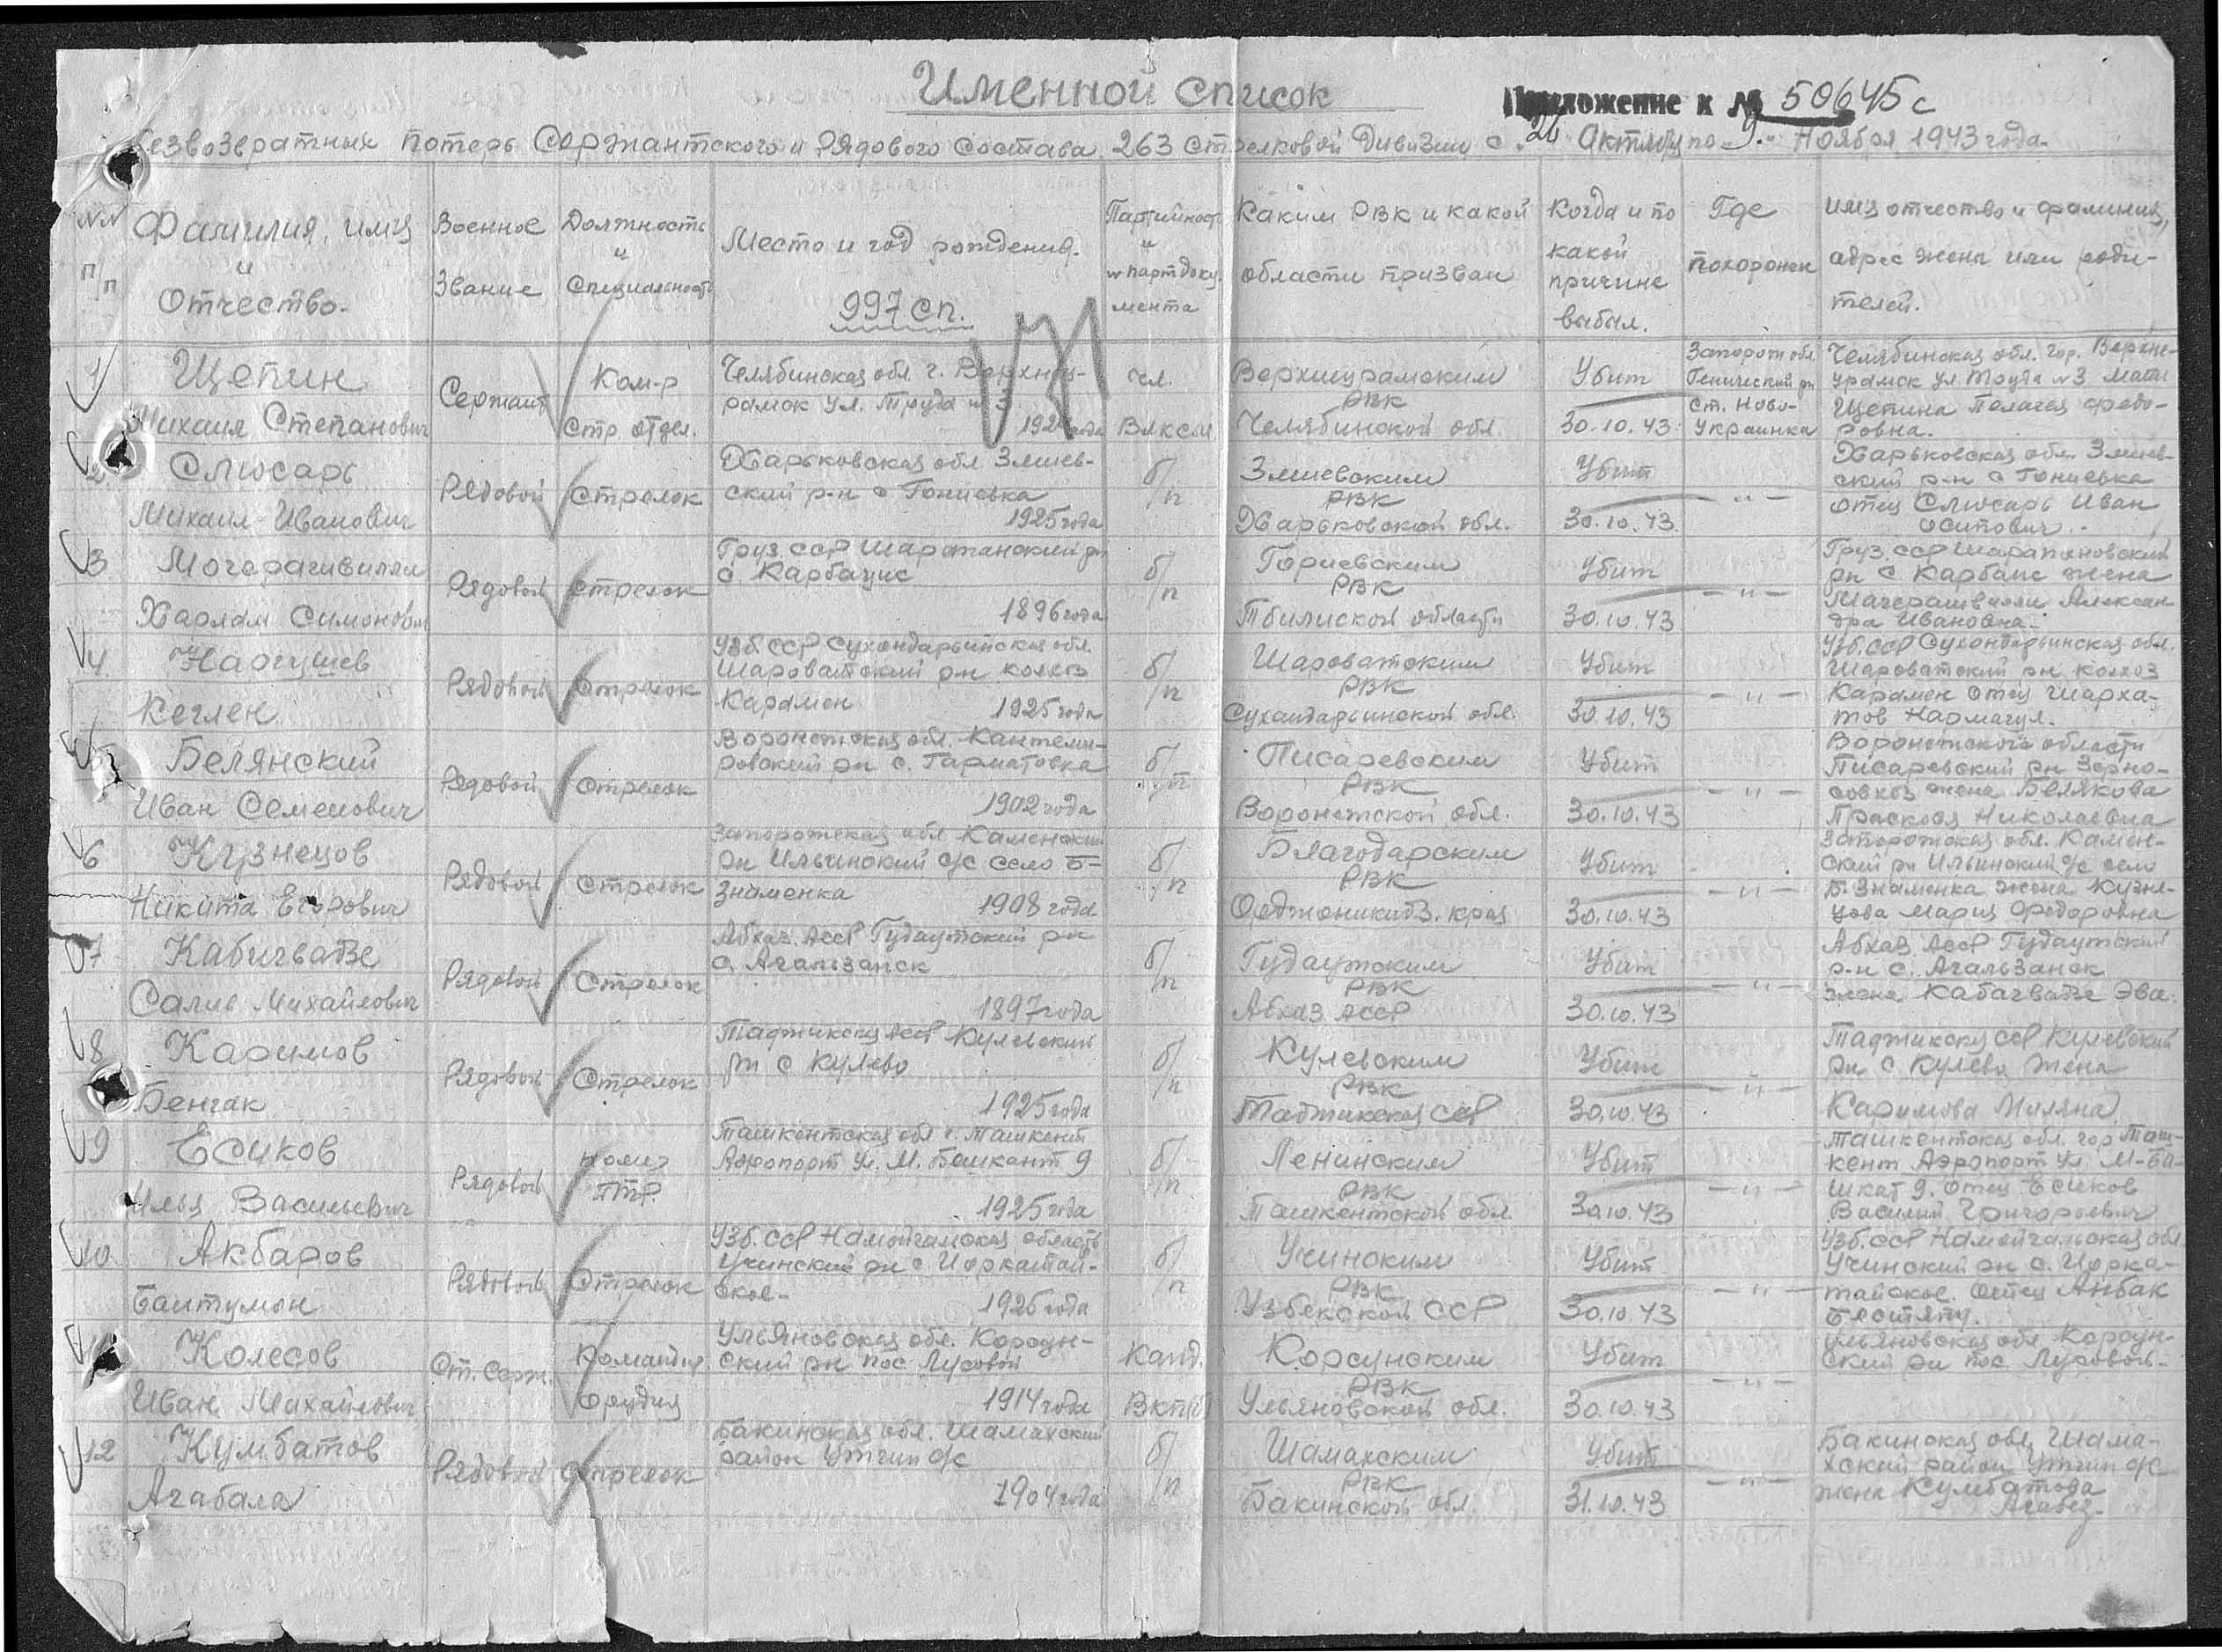 Именной список
Приложение к № 50645с
Безвозвратных потерь Сержантского и Рядового состава 263 Стрелковой Дивизии с "26" Октября по "9" Ноября 1943 года.
№№ п/п
Фамилия, имя и Отчество.
Военное Звание
Должность и Специальность
Место и год рождения.
997 сп.
Партийность и № партдокумента
Каким РВК и какой области призван
Когда и по какой причине выбыл.
Где похоронен
Имя отчество и фамилия, адрес жены или родителей.
1
Щепин
Михаил Степанович
Сержант
Ком-р
Стр. отдел.
Челябинская обл. г. Верхнеу-
рамск ул. Труда № 3
чл.
Влксм
Верхнеурамским
РВК
Челябинской обл.
Убит
30.10.43
Запорож обл.
Генический рн
ст. Ново-
Украинка
Челябинская обл. гор. Верхне-
урамск ул. Труда №3 Мать
Щепина Пелагея Федо-
ровна.
2
Слюсарь
Михаил Иванович
Рядовой
Стрелок
Харьковская обл. Змиев-
ский р-н с Гониевка
1925 года
б/п
Змиевским
РВК
Харьковской обл.
Убит
30.10.43
— " —
Харьковская обл. Змиев-
ский р-н с Гониевка
отец Слюсарь Иван
Осипович.
3
Мочерашвилли
Харлам Симонович
Рядовой
Стрелок
Груз. ССР Шаропанский рн
с Карбауис
1896 года
б/п
Гориевским
РВК
Тбилиской области
Убит
30.10.43
— " —
Груз. ССР Шарапановский
рн с Карбаис жена
Мачерашвилли Алексан-
дра Ивановна.
4
Наргушев
Кеглен
Рядовой
Стрелок
Узб. ССР Сухондарьинская обл.
Шароватский р-н колхоз
Карамен
1925 года
б/п
Шароватским
РВК
Сухандарьинской обл.
Убит
30.10.43
— " —
Узб. ССР Сухондарьинская обл.
Шароватский рн колхоз
Карамен отец Шарха-
тов Нармагул.
5
Белянский
Иван Семенович
Рядовой
Стрелок
Воронежская обл. Кантеми-
ровский рн с. Гарматовка
1902 года
б/п
Писаревским
РВК
Воронежской обл.
Убит
30.10.43
— " —
Воронежской области
Писаревский рн Зерно-
совхоз жена Белякова
Прасковя Николаевна
6
Кузнецов
Никита Егорович
Рядовой
Стрелок
Запорожская обл Каменский
рн Ильинский с/с село Б-
Знаменка
1908 года
б/п
Благодарским
РВК
Орджоникидз. края
Убит
30.10.43
— " —
Запорожская обл. Камен-
ский рн Ильинский с/с село
Б. Знаменка жена Кузне-
цова Мария Федоровна
7
Кабичвадзе
Салив Михайлович
Рядовой
Стрелок
Абхаз. АССР Гудаутский рн
с. Агальзанск
1897 года
б/п
Гудаутским
РВК
Абхаз АССР
Убит
30.10.43
— " —
Абхаз АССР Гудаутский
р-н с. Агальзанск
жена Кабачвадзе Эва.
8
Каримов
Бенгак
Рядовой
Стрелок
Таджикская АССР Кулевский
рн с Кулево
1925 года
б/п
Кулевским
РВК
Таджикская ССР
Убит
30.10.43
— " —
Таджикская ССР Кулевский
рн с Кулево жена
Каримова Миляна.
9
Есиков
Илья Васильевич
Рядовой
Номер
ПТР.
Ташкентская обл г. Ташкент
Аэропорт ул. М. Башкант 9
1925 года
б/п
Ленинским
РВК
Ташкентской обл
Убит
30.10.43
— " —
Ташкентская обл. гор Таш-
кент Аэропорт ул. М-Ба-
шкат 9. отец Есиков
Василий Григорьевич
10
Акбаров
Баитумон
Рядовой
Стрелок
Узб. ССР Намонганская область
Учинский рн с. Иоркатай-
ское-
1926 года
б/п
Учинским
РВК
Узбекской ССР
Убит
30.10.43
— " —
Учинский рн с. Иорка-
тайское. Отец Анбак
11
Колесов
Иван Михайлович
Ст. серж.
Командир
орудия
Ульяновская обл. Корсун-
ский рн пос. Луговой
1914 года
Канд.
ВКП(б)
Корсунским
РВК
Ульяновской обл.
Убит
30.10.43
— " —
Ульяновская обл Корсун-
ский рн пос. Луговой.
12
Кумбатов
Агабала
Рядовой
Стрелок
Бакинская обл. Шамахский
район Утгин с/с
1904 года
б/п
Шамахским
РВК
Бакинской обл.
Убит
31.10.43
— " —
Бакинская обл Шама-
хский район Утгин с/с
жена Кумбатова